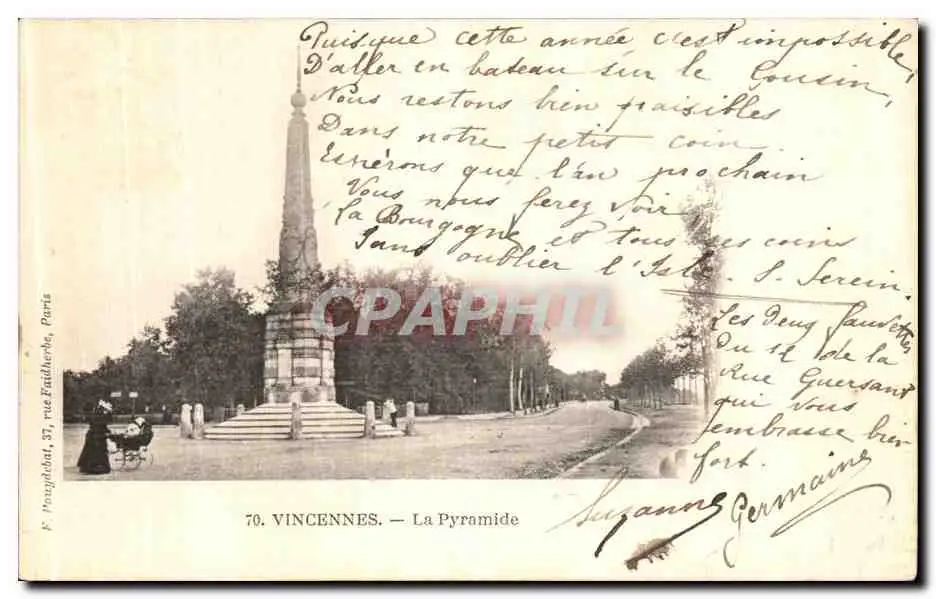 Puisque cette année c'est impossible,
D'aller en bateau sur le Cousin,
Nous restons bien paisibles
Dans notre petit coin.
Espérons que l'an prochain
Vous nous ferez voir
La Bourgogne et tous ces coins
Sans oublier l'Isle. S. Serein.
Les deux fauvettes
Du 12 de la
Rue Guersant
qui vous
embrasse bien
fort.
Suzanne Germaine
CPAPHIL
F. Pouydebat, 37, rue Faidherbe, Paris
70. VINCENNES. — La Pyramide